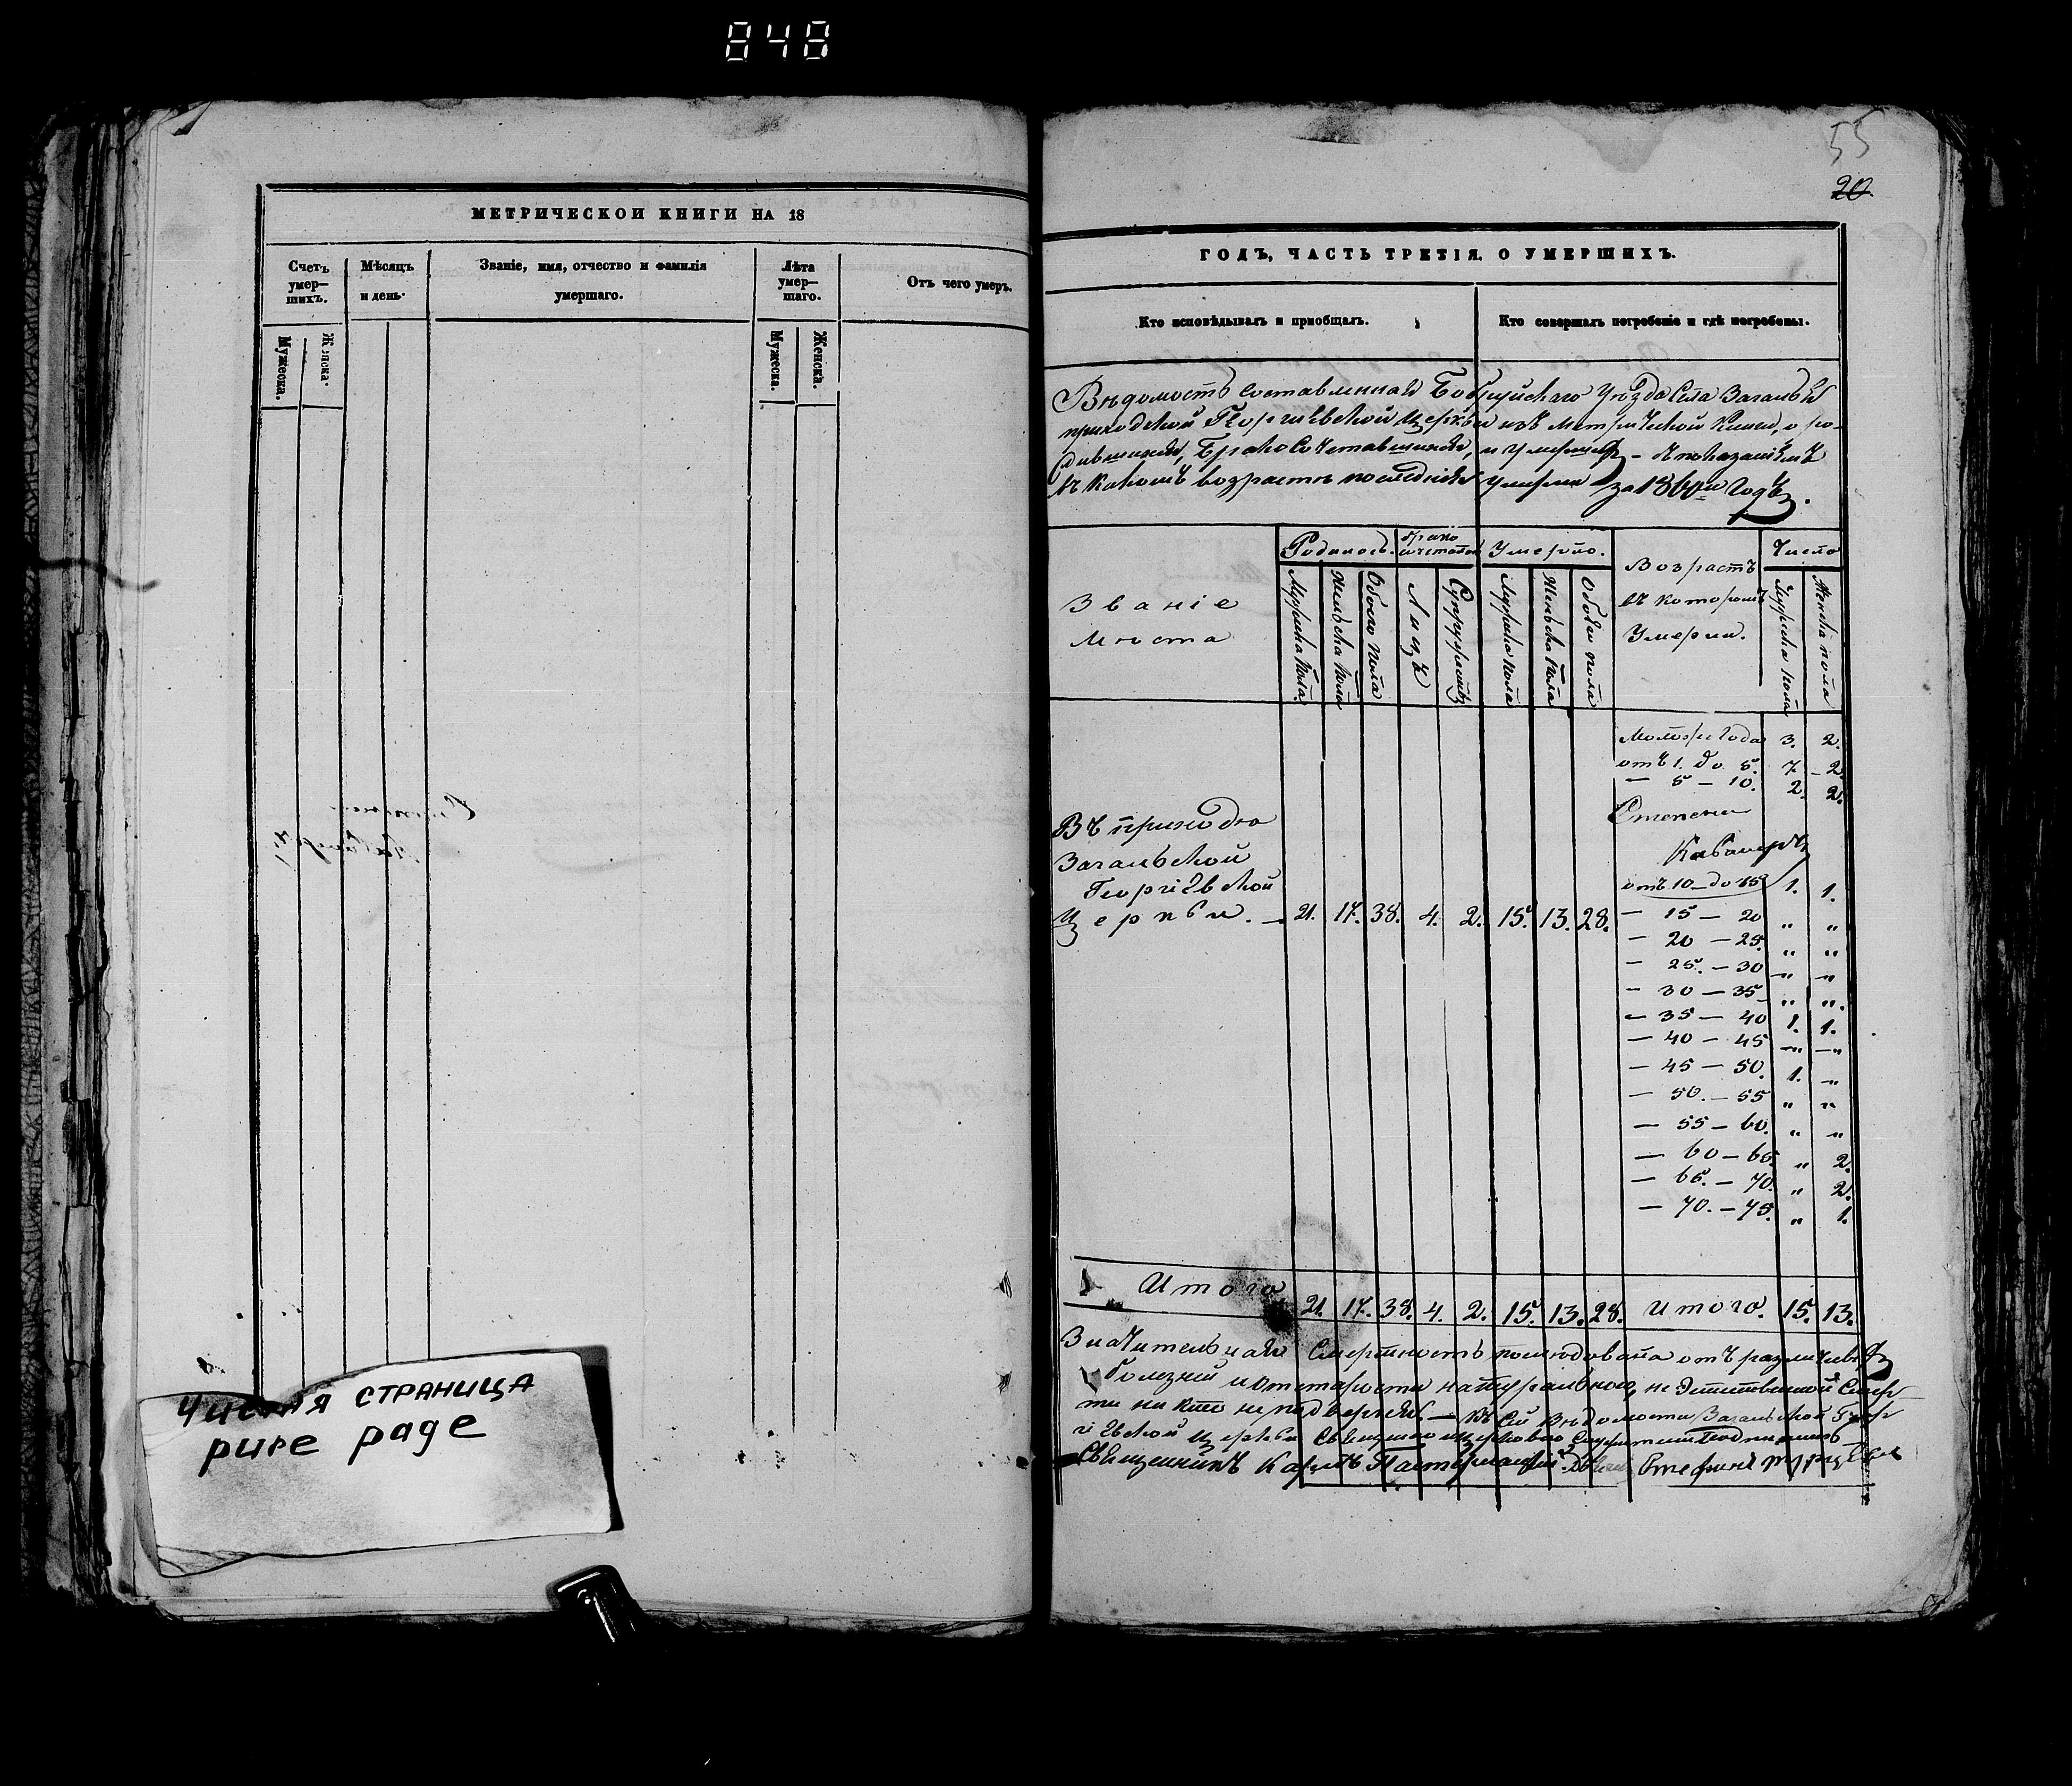 848
МЕТРИЧЕСКОЙ КНИГИ НА 18
Счетъ умер-шихъ.
Мѣсяцъ и день.
Званіе, имя, отчество и фамилія умершаго.
Лѣта умер-шаго.
Отъ чего умеръ.
Мужеска.
Женска.
Мужеска.
Женска.
Чистая страница
pure page
55
20
ГОДЪ, ЧАСТЬ ТРЕТІЯ, О УМЕРШИХЪ.
Кто исповѣдывалъ и пріобщалъ.
Кто совершалъ погребеніе и гдѣ погребены.
Вѣдомость составленная Бобруйскаго Уѣзда Села Загалья
приходской Георгіевской Церкви изъ метрической Книги, о ро-
дившихся, Бракосочетавшихся, и умершихъ – съ показаніемъ
въ какомъ возрастѣ последніе умерли за 1860й Годъ.
Званіе
Мѣста
Родилось.
Умерло.
Мужеска пола
Женска пола
Обоего пола
Лицъ
Супружествъ
Мужеска пола
Женска пола
Обоего пола
Возрастъ
въ которомъ
Умерли.
Число
Мужеска пола
Женска пола
Моложе Года 3. 2.
отъ 1. до 5. 7. – 2
— 5 — 10. 2. 2.
Степени
отъ 10 – до 15 1. 1.
Въ приходѣ
Загальской
Георгіевской
Церкви. — 21. 17. 38. 4. 2. 15. 13. 28.
— 15 — 20 „ „
— 20 — 25. „ „
— 25. — 30 „ „
— 30 — 35 „ „
— 35 — 40 1. 1.
— 40 — 45 „ „
— 45 — 50. 1. „
— 50. — 55 „ „
— 55 — 60. „ „
— 60 — 65 „ 2.
— 65. — 70. „ 2.
— 70. — 75. „ 1.
Итого 21. 17. 38. 4. 2. 15. 13. 28. Итого. 15. 13.
Значительная Смертность последовала отъ различныхъ
болезней и отъ старости натуральною, не Эстественной Смер
ти ни кто не подвергся. — Къ сей вѣдомости Загальской Геор
гіевской Церкви Священно церковно Служители Подписались
Священникъ